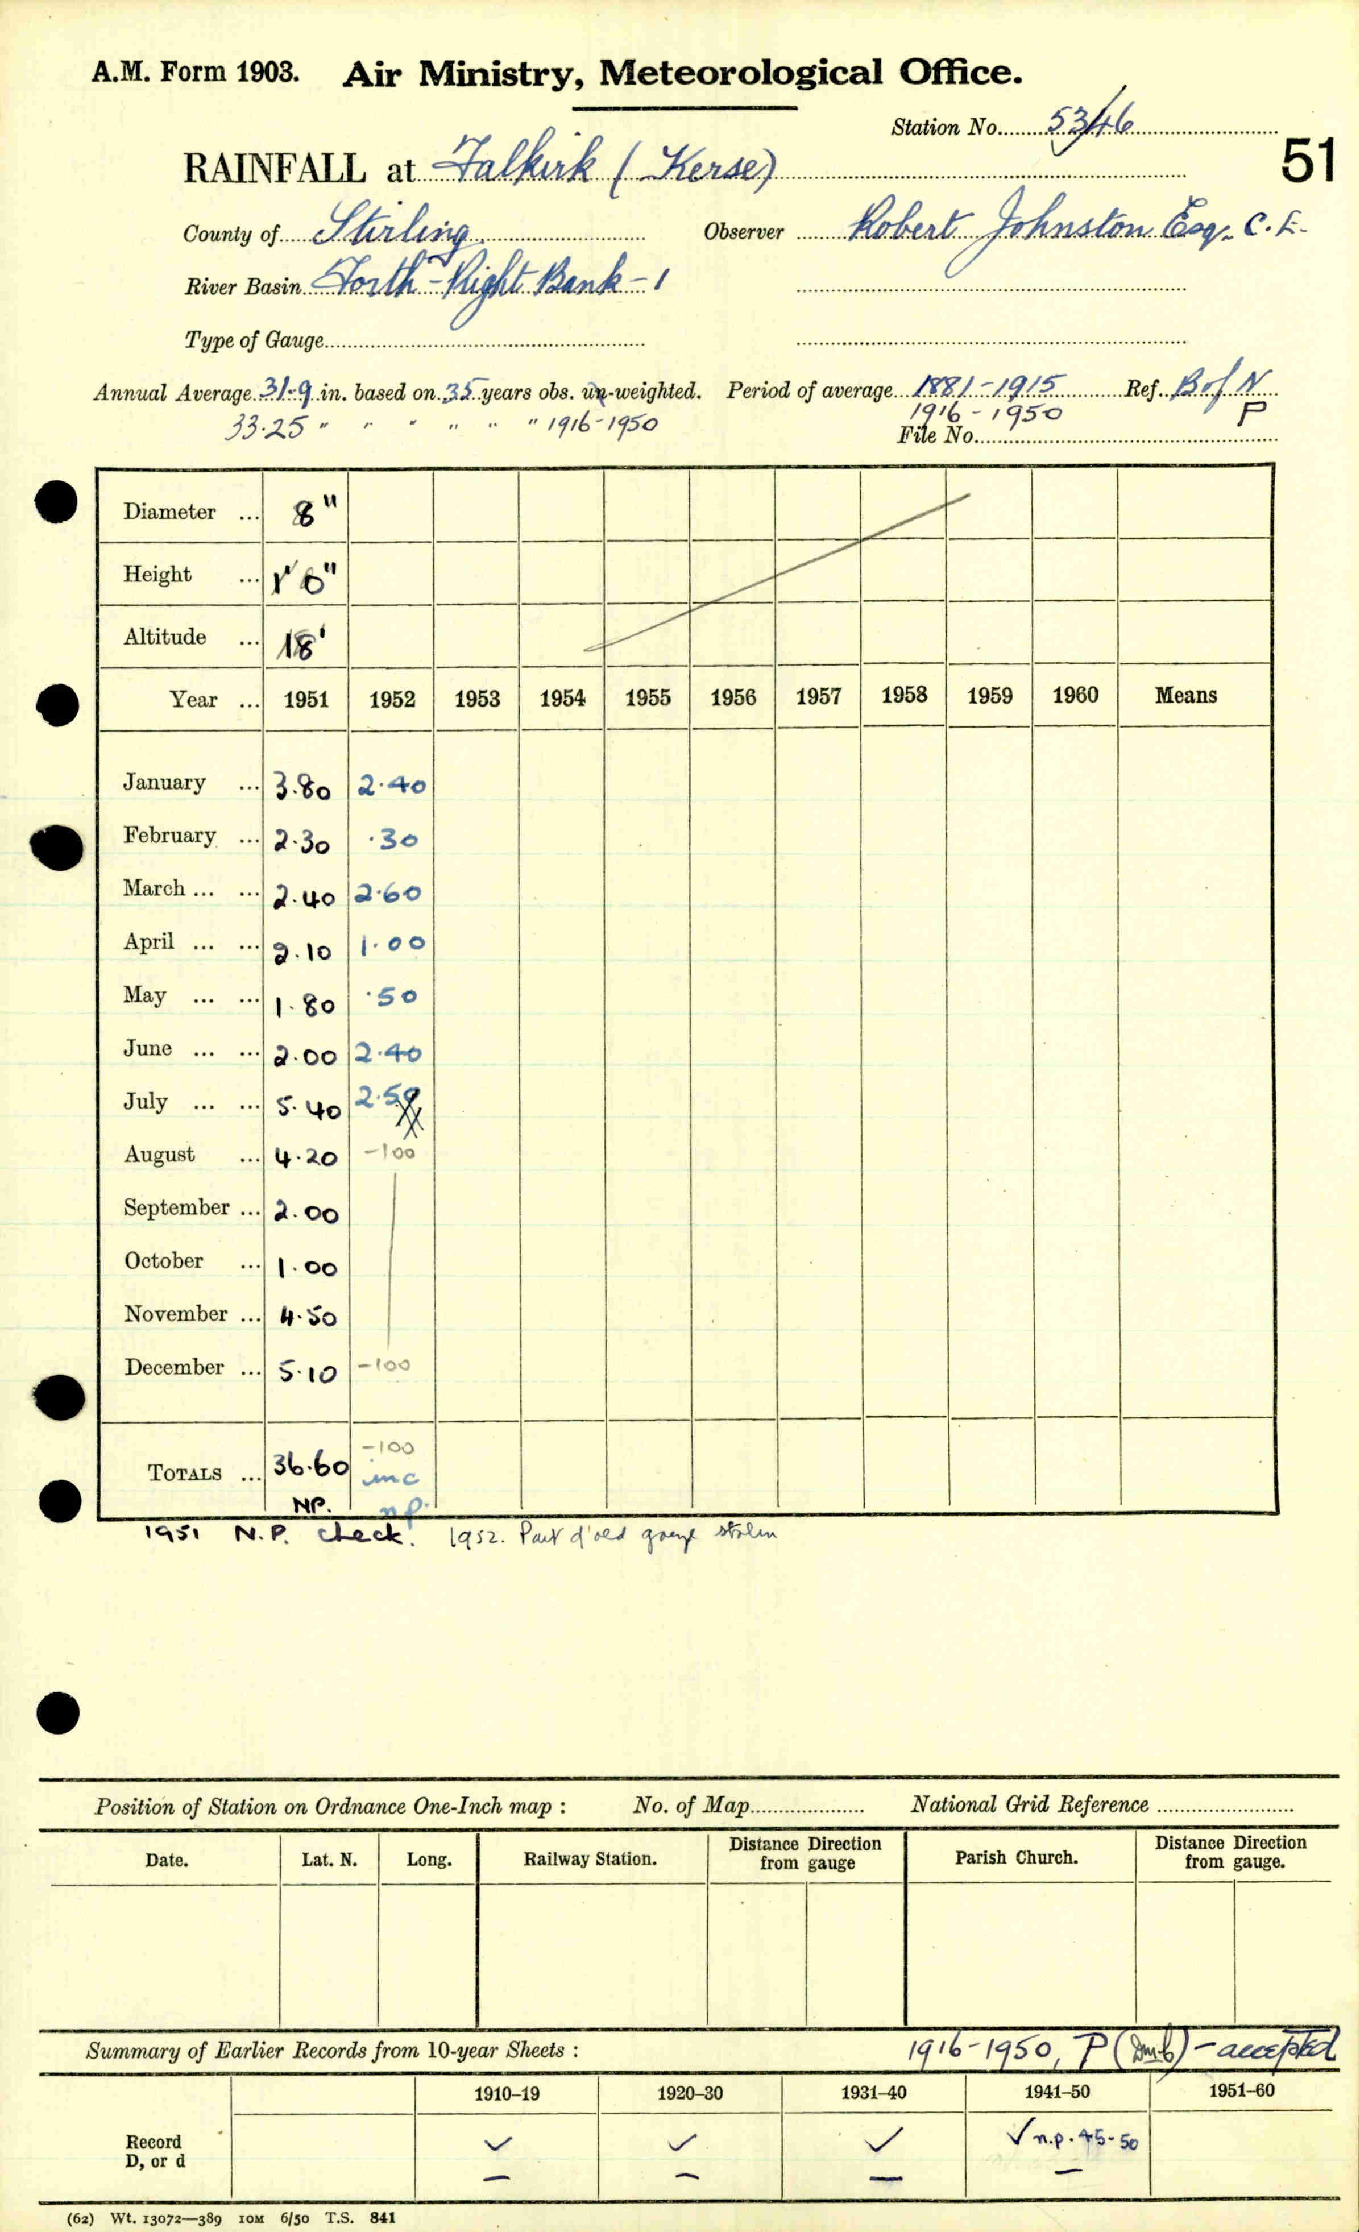 A.M. Form 1903. Air Ministry, Meteorological Office.
Station No. 5346
51
RAINFALL at Falkirk (Kerse)
County of Stirling. Observer Robert Johnston Esq. C.E.
River Basin Forth - Right Bank - 1
Type of Gauge
Annual Average 31.9 in. based on 35 years obs. un-weighted. Period of average 1881-1915 Ref. B of N
33.25 " " " " " " 1916-1950 1916-1950 P
File No.
Diameter ... 8"
Height ... 1' 0"
Altitude ... 18'
Year ... 1951 1952 1953 1954 1955 1956 1957 1958 1959 1960 Means
January ... 3.80 2.40
February ... 2.30 .30
March ... ... 2.40 2.60
April ... ... 2.10 1.00
May ... ... 1.80 .50
June ... ... 2.00 2.40
July ... ... 5.40 2.50
August ... 4.20 -100
September ... 2.00
October ... 1.00
November ... 4.50
December ... 5.10 -100
-100
TOTALS ... 36.60 inc
NP. n.p.
1951 N.P. check. 1952. Part of old gauge stolen
Position of Station on Ordnance One-Inch map : No. of Map National Grid Reference
Date. Lat. N. Long. Railway Station. Distance from Direction gauge Parish Church. Distance from Direction gauge.
Summary of Earlier Records from 10-year Sheets : 1916-1950, P ( ) - accepted
1910-19 1920-30 1931-40 1941-50 1951-60
Record ✓ ✓ ✓ ✓ n.p. 45-50
D, or d — — — —
(62) Wt. 13072—389 10M 6/50 T.S. 841